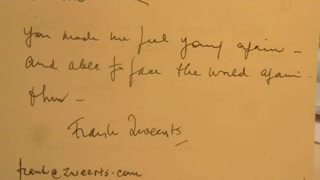 You made me feel young again –
and able to face the world again
thru –
Frank Zweerts
frank@zweerts.com